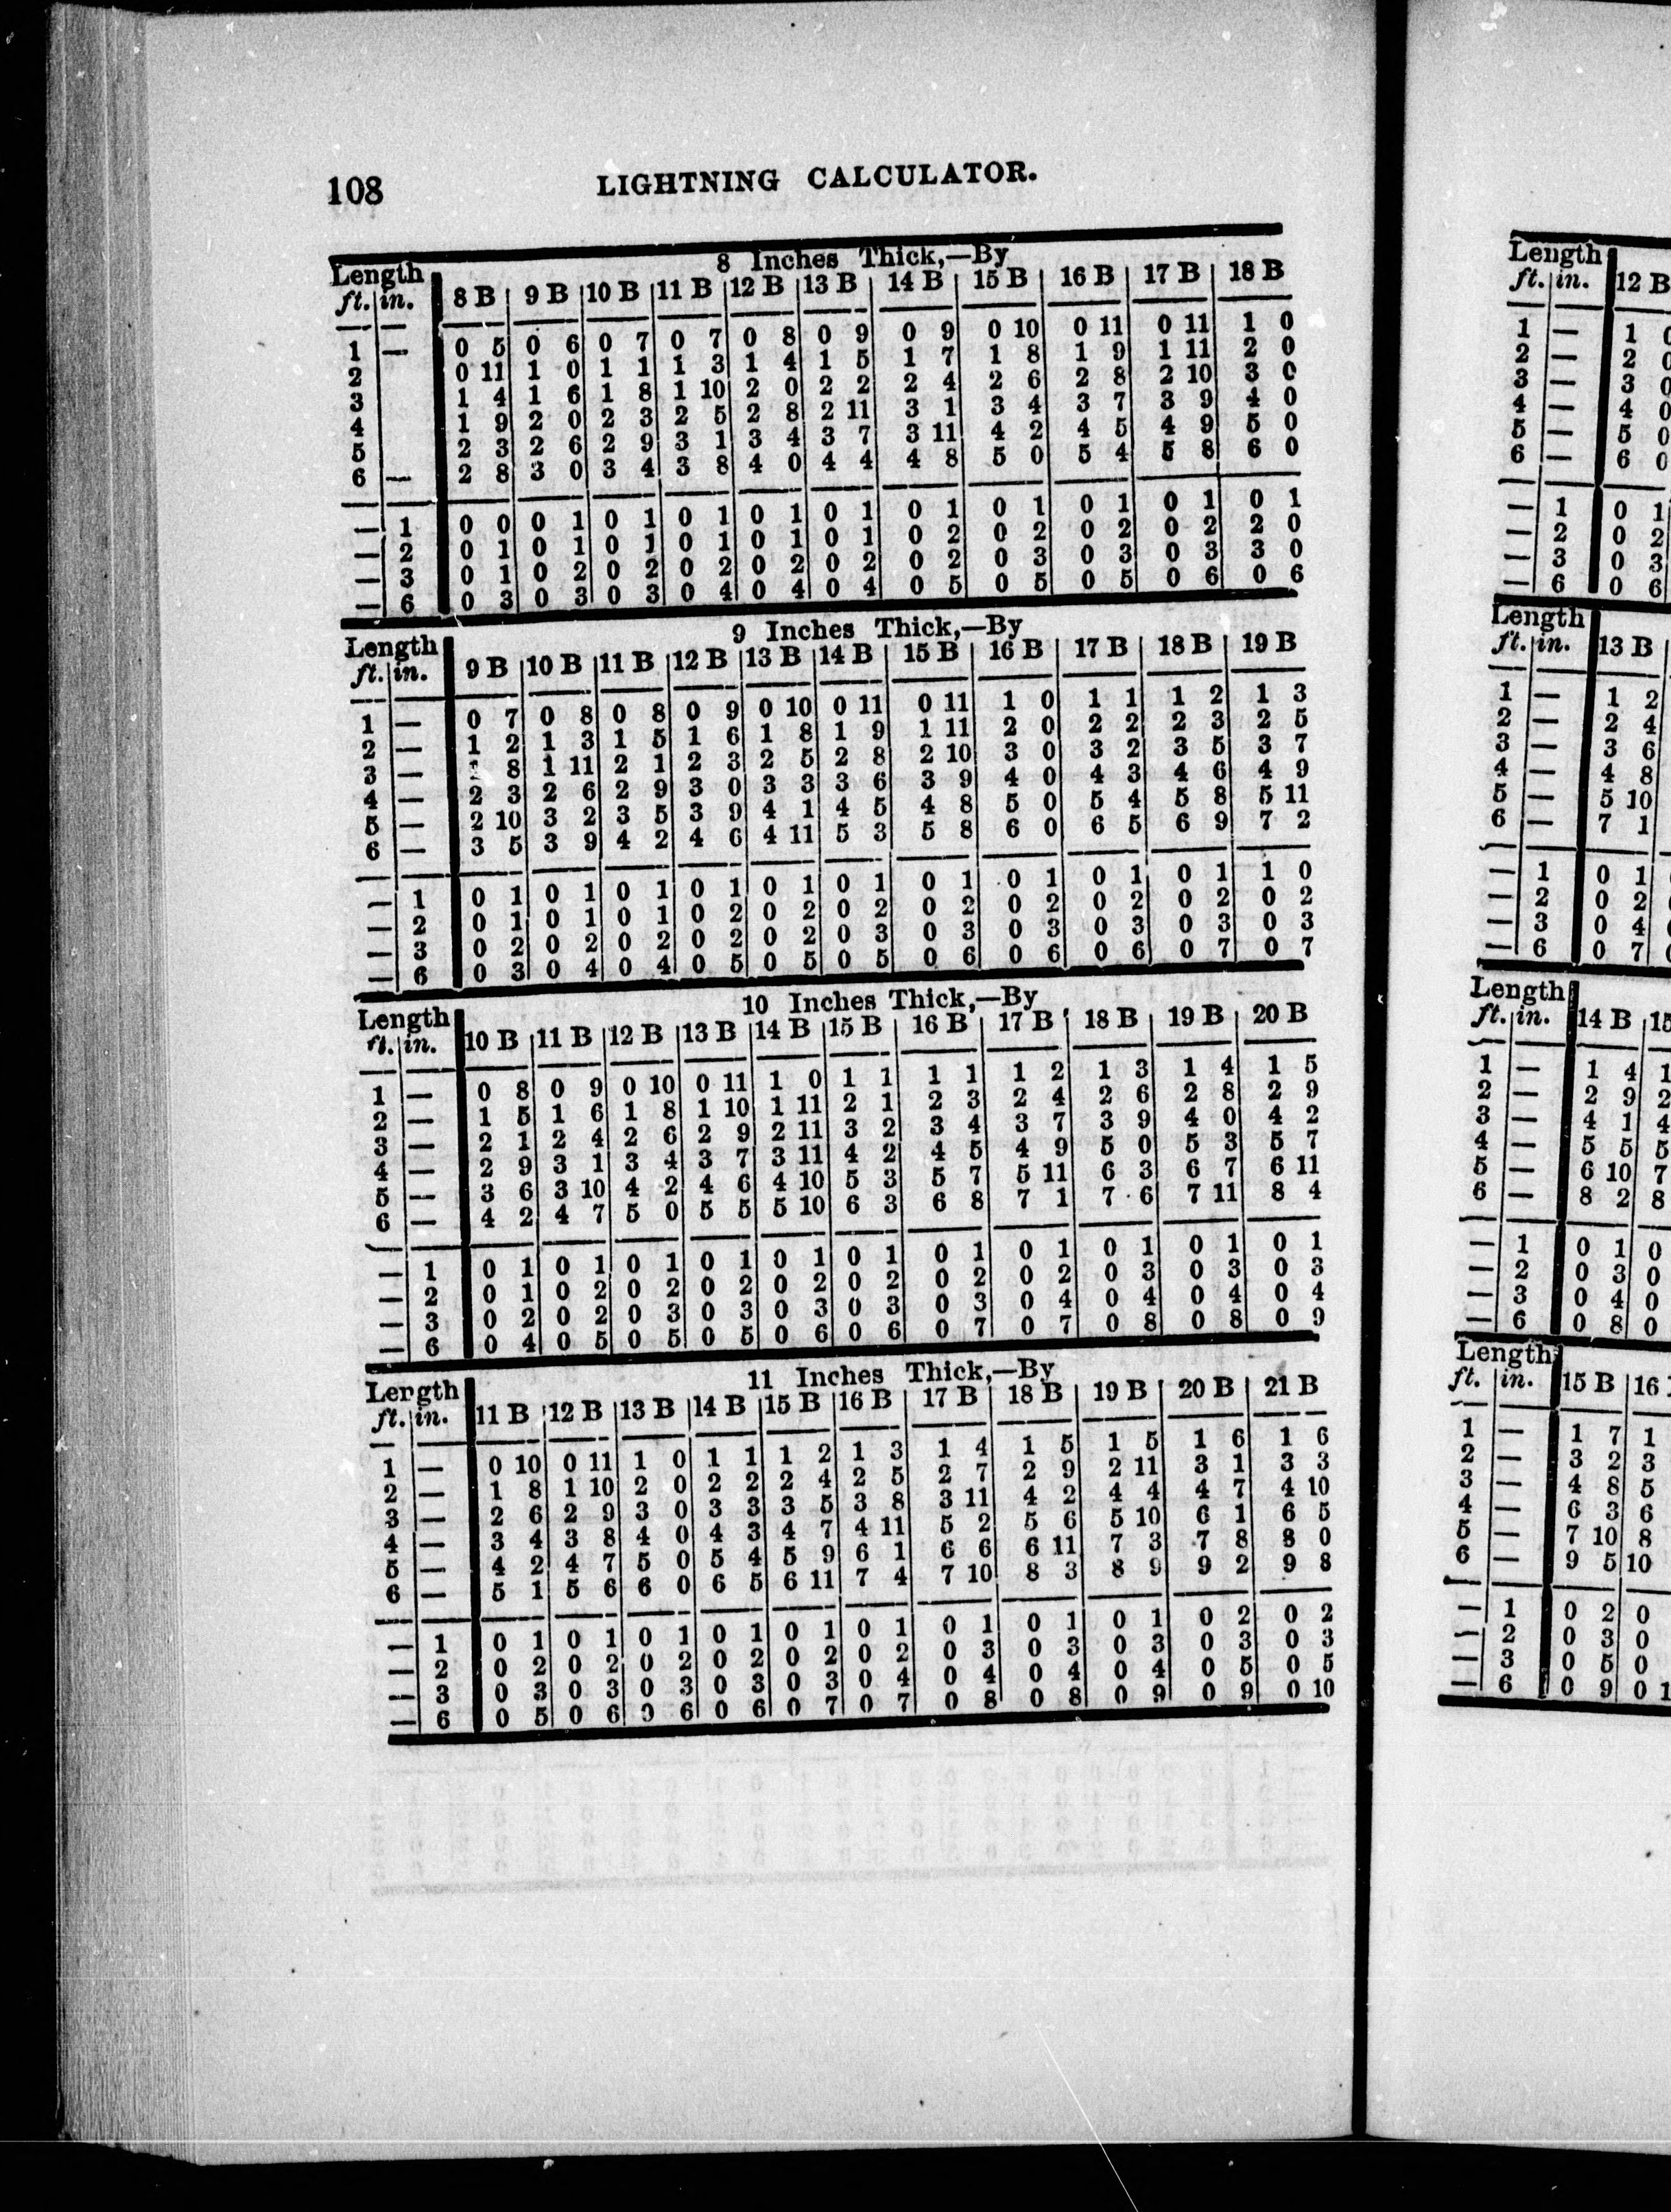 108 LIGHTNING CALCULATOR.
Length 8 Inches Thick,—By
ft. in. 8 B 9 B 10 B 11 B 12 B 13 B 14 B 15 B 16 B 17 B 18 B
1 — 0 5 0 6 0 7 0 7 0 8 0 9 0 9 0 10 0 11 0 11 1 0
2 0 11 1 0 1 1 1 3 1 4 1 5 1 7 1 8 1 9 1 11 2 0
3 1 4 1 6 1 8 1 10 2 0 2 2 2 4 2 6 2 8 2 10 3 0
4 1 9 2 0 2 3 2 5 2 8 2 11 3 1 3 4 3 7 3 9 4 0
5 2 3 2 6 2 9 3 1 3 4 3 7 3 11 4 2 4 5 4 9 5 0
6 — 2 8 3 0 3 4 3 8 4 0 4 4 4 8 5 0 5 4 5 8 6 0
— 1 0 0 0 1 0 1 0 1 0 1 0 1 0 1 0 1 0 1 0 1 0 1
— 2 0 1 0 1 0 1 0 1 0 1 0 1 0 2 0 2 0 2 0 2 2 0
— 3 0 1 0 2 0 2 0 2 0 2 0 2 0 2 0 3 0 3 0 3 3 0
— 6 0 3 0 3 0 3 0 4 0 4 0 4 0 5 0 5 0 5 0 6 0 6
Length 9 Inches Thick,—By
ft. in. 9 B 10 B 11 B 12 B 13 B 14 B 15 B 16 B 17 B 18 B 19 B
1 — 0 7 0 8 0 8 0 9 0 10 0 11 0 11 1 0 1 1 1 2 1 3
2 — 1 2 1 3 1 5 1 6 1 8 1 9 1 11 2 0 2 2 2 3 2 5
3 — 1 8 1 11 2 1 2 3 2 5 2 8 2 10 3 0 3 2 3 5 3 7
4 — 2 3 2 6 2 9 3 0 3 3 3 6 3 9 4 0 4 3 4 6 4 9
5 — 2 10 3 2 3 5 3 9 4 1 4 5 4 8 5 0 5 4 5 8 5 11
6 — 3 5 3 9 4 2 4 6 4 11 5 3 5 8 6 0 6 5 6 9 7 2
— 1 0 1 0 1 0 1 0 1 0 1 0 1 0 1 0 1 0 1 0 1 1 0
— 2 0 1 0 1 0 1 0 2 0 2 0 2 0 2 0 2 0 2 0 2 0 2
— 3 0 2 0 2 0 2 0 2 0 2 0 3 0 3 0 3 0 3 0 3 0 3
— 6 0 3 0 4 0 4 0 5 0 5 0 5 0 6 0 6 0 6 0 7 0 7
Length 10 Inches Thick,—By
ft. in. 10 B 11 B 12 B 13 B 14 B 15 B 16 B 17 B 18 B 19 B 20 B
1 — 0 8 0 9 0 10 0 11 1 0 1 1 1 1 1 2 1 3 1 4 1 5
2 — 1 5 1 6 1 8 1 10 1 11 2 1 2 3 2 4 2 6 2 8 2 9
3 — 2 1 2 4 2 6 2 9 2 11 3 2 3 4 3 7 3 9 4 0 4 2
4 — 2 9 3 1 3 4 3 7 3 11 4 2 4 5 4 9 5 0 5 3 5 7
5 — 3 6 3 10 4 2 4 6 4 10 5 3 5 7 5 11 6 3 6 7 6 11
6 — 4 2 4 7 5 0 5 5 5 10 6 3 6 8 7 1 7 6 7 11 8 4
— 1 0 1 0 1 0 1 0 1 0 1 0 1 0 1 0 1 0 1 0 1 0 1
— 2 0 1 0 2 0 2 0 2 0 2 0 2 0 2 0 2 0 3 0 3 0 3
— 3 0 2 0 2 0 3 0 3 0 3 0 3 0 3 0 4 0 4 0 4 0 4
— 6 0 4 0 5 0 5 0 5 0 6 0 6 0 7 0 7 0 8 0 8 0 9
Length 11 Inches Thick,—By
ft. in. 11 B 12 B 13 B 14 B 15 B 16 B 17 B 18 B 19 B 20 B 21 B
1 — 0 10 0 11 1 0 1 1 1 2 1 3 1 4 1 5 1 5 1 6 1 6
2 — 1 8 1 10 2 0 2 2 2 4 2 5 2 7 2 9 2 11 3 1 3 3
3 — 2 6 2 9 3 0 3 3 3 5 3 8 3 11 4 2 4 4 4 7 4 10
4 — 3 4 3 8 4 0 4 3 4 7 4 11 5 2 5 6 5 10 6 1 6 5
5 — 4 2 4 7 5 0 5 4 5 9 6 1 6 6 6 11 7 3 7 8 8 0
6 — 5 1 5 6 6 0 6 5 6 11 7 4 7 10 8 3 8 9 9 2 9 8
— 1 0 1 0 1 0 1 0 1 0 1 0 1 0 1 0 1 0 1 0 2 0 2
— 2 0 2 0 2 0 2 0 2 0 2 0 2 0 3 0 3 0 3 0 3 0 3
— 3 0 3 0 3 0 3 0 3 0 3 0 4 0 4 0 4 0 4 0 5 0 5
— 6 0 5 0 6 0 6 0 6 0 7 0 7 0 8 0 8 0 9 0 9 0 10
Length
ft. in. 12 B
1 — 1
2 — 2
3 — 3
4 — 4
5 — 5
6 — 6
— 1 0 1
— 2 0 2
— 3 0 3
— 6 0 6
Length
ft. in. 13 B
1 — 1 2
2 — 2 4
3 — 3 6
4 — 4 8
5 — 5 10
6 — 7 1
— 1 0 1
— 2 0 2
— 3 0 4
— 6 0 7
Length
ft. in. 14 B 15
1 — 1 4 1
2 — 2 9 2
3 — 4 1 4
4 — 5 5 5
5 — 6 10 7
6 — 8 2 8
— 1 0 1 0
— 2 0 3 0
— 3 0 4 0
— 6 0 8 0
Length
ft. in. 15 B 16
1 — 1 7 1
2 — 3 2 3
3 — 4 8 5
4 — 6 3 6
5 — 7 10 8
6 — 9 5 10
— 1 0 2 0
— 2 0 3 0
— 3 0 5 0
— 6 0 9 0 1